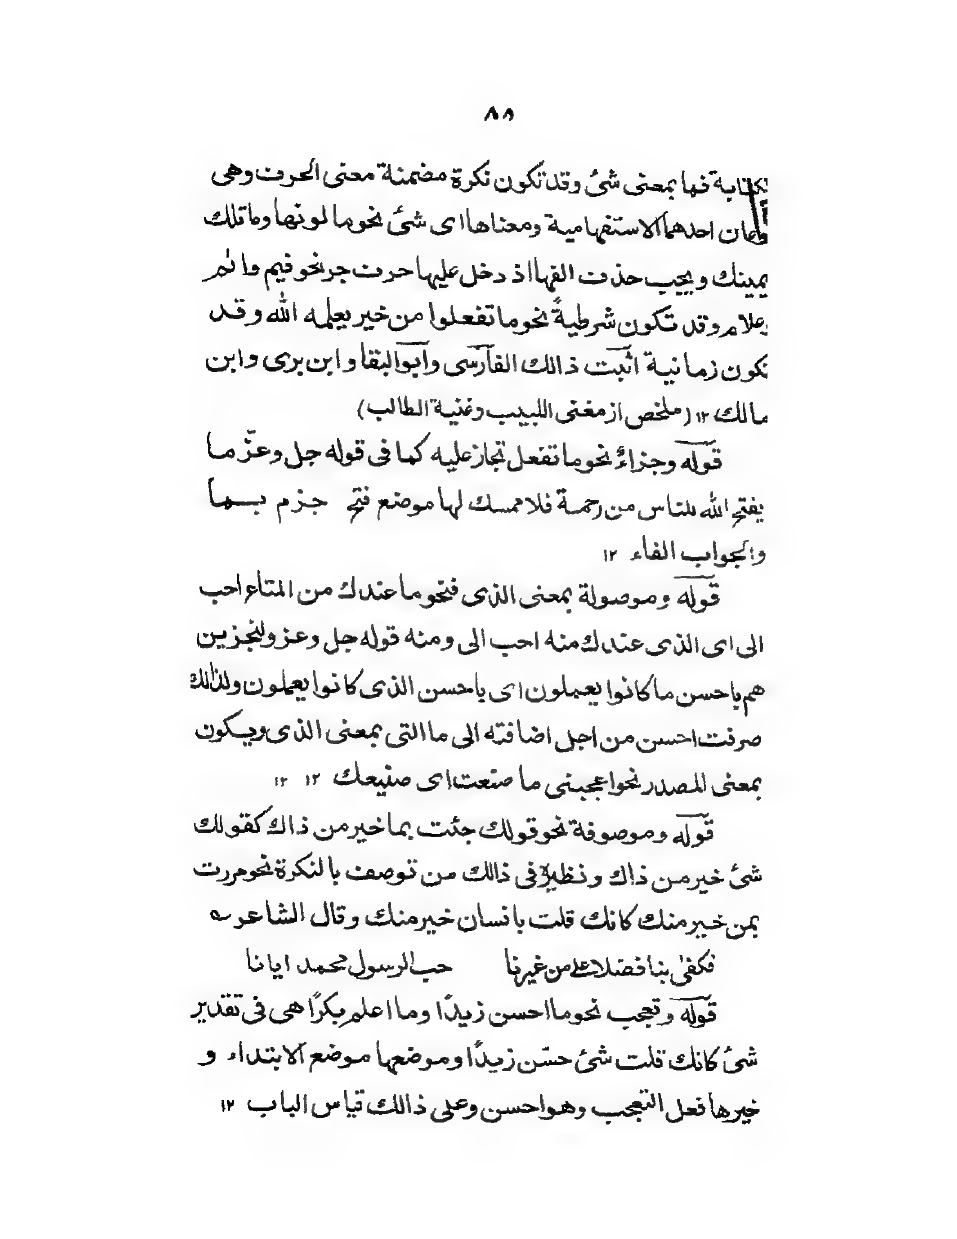 ٨٨
كتابة فها بمعنى شئ وقد تكون نكرة مضمنة معنى الحرف وهى
نوعان احدهما الاستفهامية ومعناها اى شئ نحو ما لونها وما تلك
بيمينك ويجب حذف الفها اذ دخل عليها حرف جر نحو فيم والم
وعلام وقد تكون شرطية نحو ما تفعلوا من خير يعلمه الله وقد
تكون زمانية اثبت ذالك الفارسى وابو البقا وابن برى وابن
مالك ١٢ (ملخص از مغنى اللبيب وغنية الطالب)
قوله وجزاءً نحو ما تفعل تجاز عليه كما فى قوله جل وعزّ ما
يفتح الله للناس من رحمة فلا ممسك لها موضع فتح جزم بـما
والجواب الفاء ١٢
قوله وموصولة بمعنى الذى فنحو ما عندك من المتاع احب
الى اى الذى عندك منه احب الى ومنه قوله جل وعز ولنجزين
هم باحسن ما كانوا يعملون اى باحسن الذى كانوا يعملون ولذالك
صرفت احسن من اجل اضافته الى ما التى بمعنى الذى ويكون
بمعنى المصدر نحو اعجبنى ما صنعت اى صنيعك ١٢ ١٢
قوله وموصوفة نحو قولك جئت بما خير من ذاك كقولك
شئ خير من ذاك ونظيره فى ذالك من توصف بالنكرة نحو مررت
بمن خير منك كانك قلت بانسان خير منك وقال الشاعر ؎
فكفىٰ بنا فضلا على من غيرنا حب الرسول محمد ايانا
قوله وتعجب نحو ما احسن زيدًا وما اعلم بكرًا هى فى تقدير
شئ كانك قلت شئ حسّن زيدًا وموضعها موضع الابتداء و
خيرها فعل التعجب وهو احسن وعلى ذالك قياس الباب ١٢